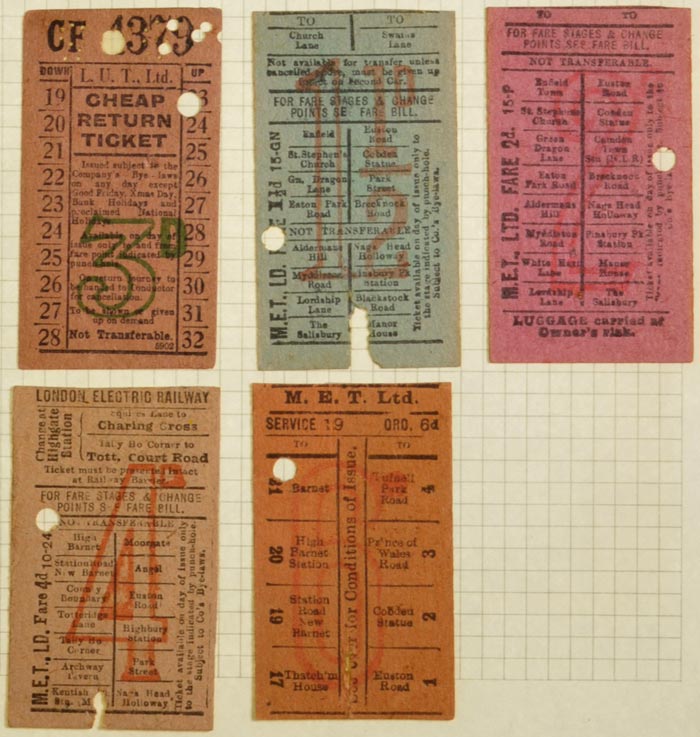 CF 4379
DOWN
L. U. T., Ltd.
UP
CHEAP
RETURN
TICKET
19
20
21
22
23
24
25
26
27
28
23
24
25
26
27
28
29
30
31
32
Issued subject to the
Company's Bye-laws
on any day except
Good Friday, Xmas Day
Bank Holidays and
proclaimed National
Holidays
3D
Not Transferable.
5902
TO TO
Church Lane
Swains Lane
Not available for transfer unless
cancelled
must be given up
on Second Car.
FOR FARE STAGES & CHANGE
POINTS SEE FARE BILL.
Enfield
Euston Road
St. Stephen's Church
Cobden Statue
Gn. Dragon Lane
Park Street
Eaton Park Road
Brecknock Road
NOT TRANSFERABLE
Aldermans Hill
Nags Head Holloway
Myddleton Road
Finsbury Pk Station
Lordship Lane
Blackstock Road
The Salisbury
Manor House
15-GN
Ticket available on day of issue only to
the stage indicated by punch-hole.
Subject to Co's Bye-laws.
TO TO
FOR FARE STAGES & CHANGE
POINTS SEE FARE BILL.
NOT TRANSFERABLE.
Enfield Town
Euston Road
St. Stephen's Church
Cobden Statue
Green Dragon Lane
Camden Town Stn (N.L.R)
Eaton Park Road
Brecknock Road
Aldermans Hill
Nags Head Holloway
Myddleton Road
Finsbury Pk. Station
White Hart Lane
Manor House
Lordship Lane
The Salisbury
LUGGAGE carried at
Owner's risk.
M.E.T., LTD. FARE 2d. 15-P
LONDON ELECTRIC RAILWAY
Change at
Highgate
Station
Squires Lane to
Charing Cross
Tally Ho Corner to
Tott. Court Road
Ticket must be presented intact
at Railway Barrier
FOR FARE STAGES & CHANGE
POINTS SEE FARE BILL.
NOT TRANSFERABLE
High Barnet
Moorgate
Station Road New Barnet
Angel
County Boundary
Euston Road
Totteridge Lane
Highbury Station
Tally Ho Corner
Park Street
Archway Tavern
Kentish Tn. Stn.
Nags Head Holloway
4D
M.E.T., LD. Fare 4d 10-24
Ticket available on day of issue only
to the stage indicated by punch-hole.
Subject to Co's Bye-laws.
M. E. T. Ltd.
SERVICE 19 ORD. 6d
TO TO
21 Barnet
Tufnell Park Road 4
20 High Barnet Station
Prince of Wales Road 3
19 Station Road New Barnet
Cobden Statue 2
17 Thatch'm House
Euston Road 1
See over for Conditions of Issue.